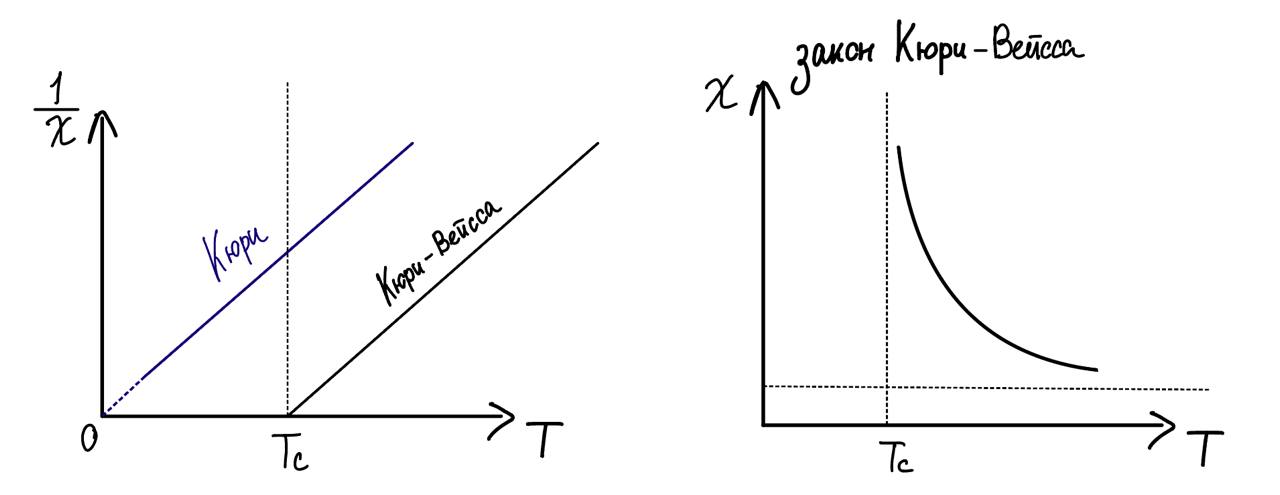 1/χ
Кюри
Кюри-Вейсса
0
Tc
T
закон Кюри-Вейсса
χ
Tc
T